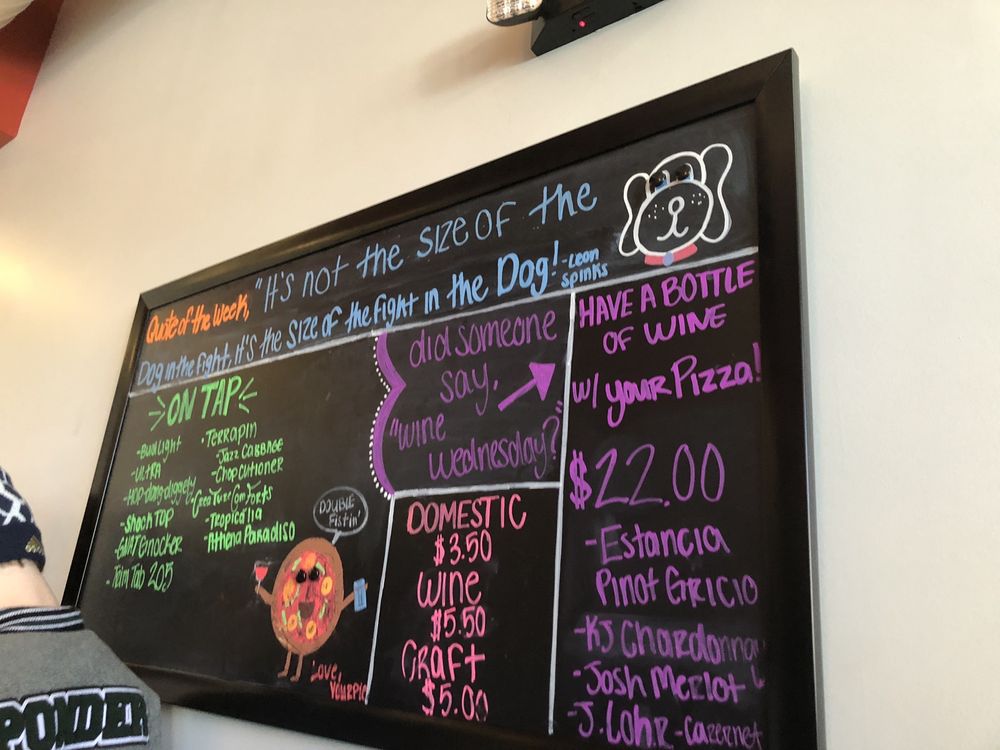 Quote of the Week, "It's not the size of the
Dog in the fight, it's the size of the fight in the Dog! -Leon
Spinks
ON TAP
-Bud Light
-ULTRA
-Hop dang diggety
-Shock TOP
-GNATEknocker
-Tam Tab 205
-TERRAPIN
-Jazz Cabbage
-Chopcutioner
-Creature Comforts
-Tropicalia
-Athena Paradiso
DOUBLE
Fistin'
Love,
YOURPIE
did someone
say,
"Wine
Wednesday?"
DOMESTIC
$3.50
Wine
$5.50
Craft
$5.00
HAVE A BOTTLE
OF WINE
w/ your Pizza!
$22.00
-Estancia
Pinot Gricio
-KJ Chardonnay
-Josh Merlot
-J. Lohr - Cazernet
PONDER